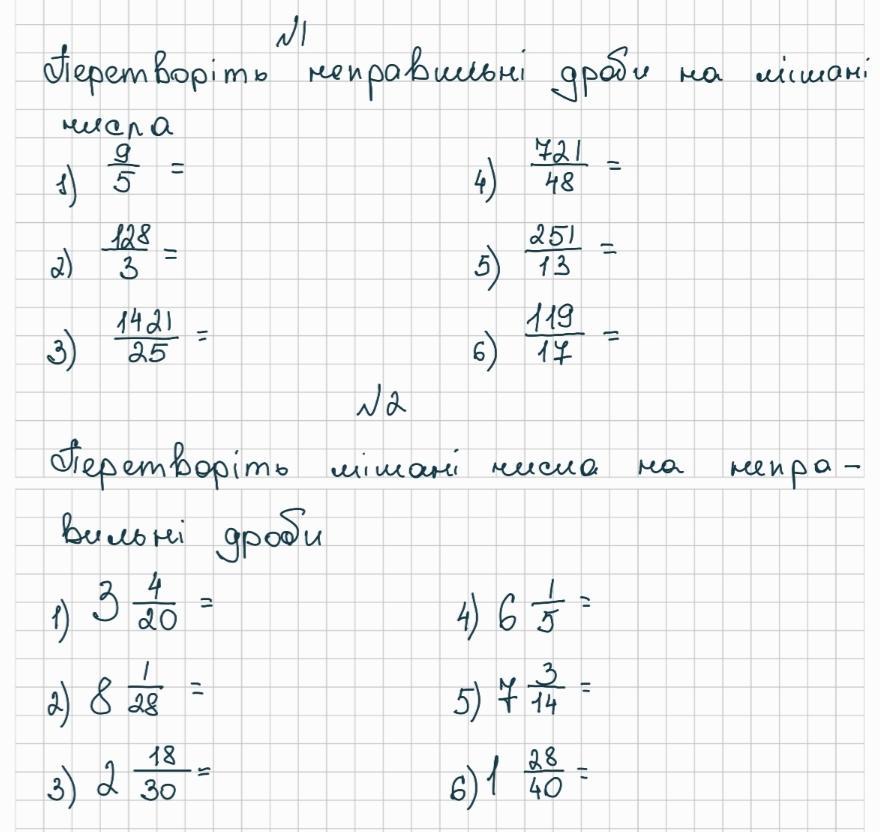 №1
Перетворіть неправильні дроби на мішані
числа
1) 9/5 =
4) 721/48 =
2) 128/3 =
5) 251/13 =
3) 1421/25 =
6) 119/17 =
№2
Перетворіть мішані числа на непра-
вильні дроби
1) 3 4/20 =
4) 6 1/5 =
2) 8 1/28 =
5) 7 3/14 =
3) 2 18/30 =
6) 1 28/40 =